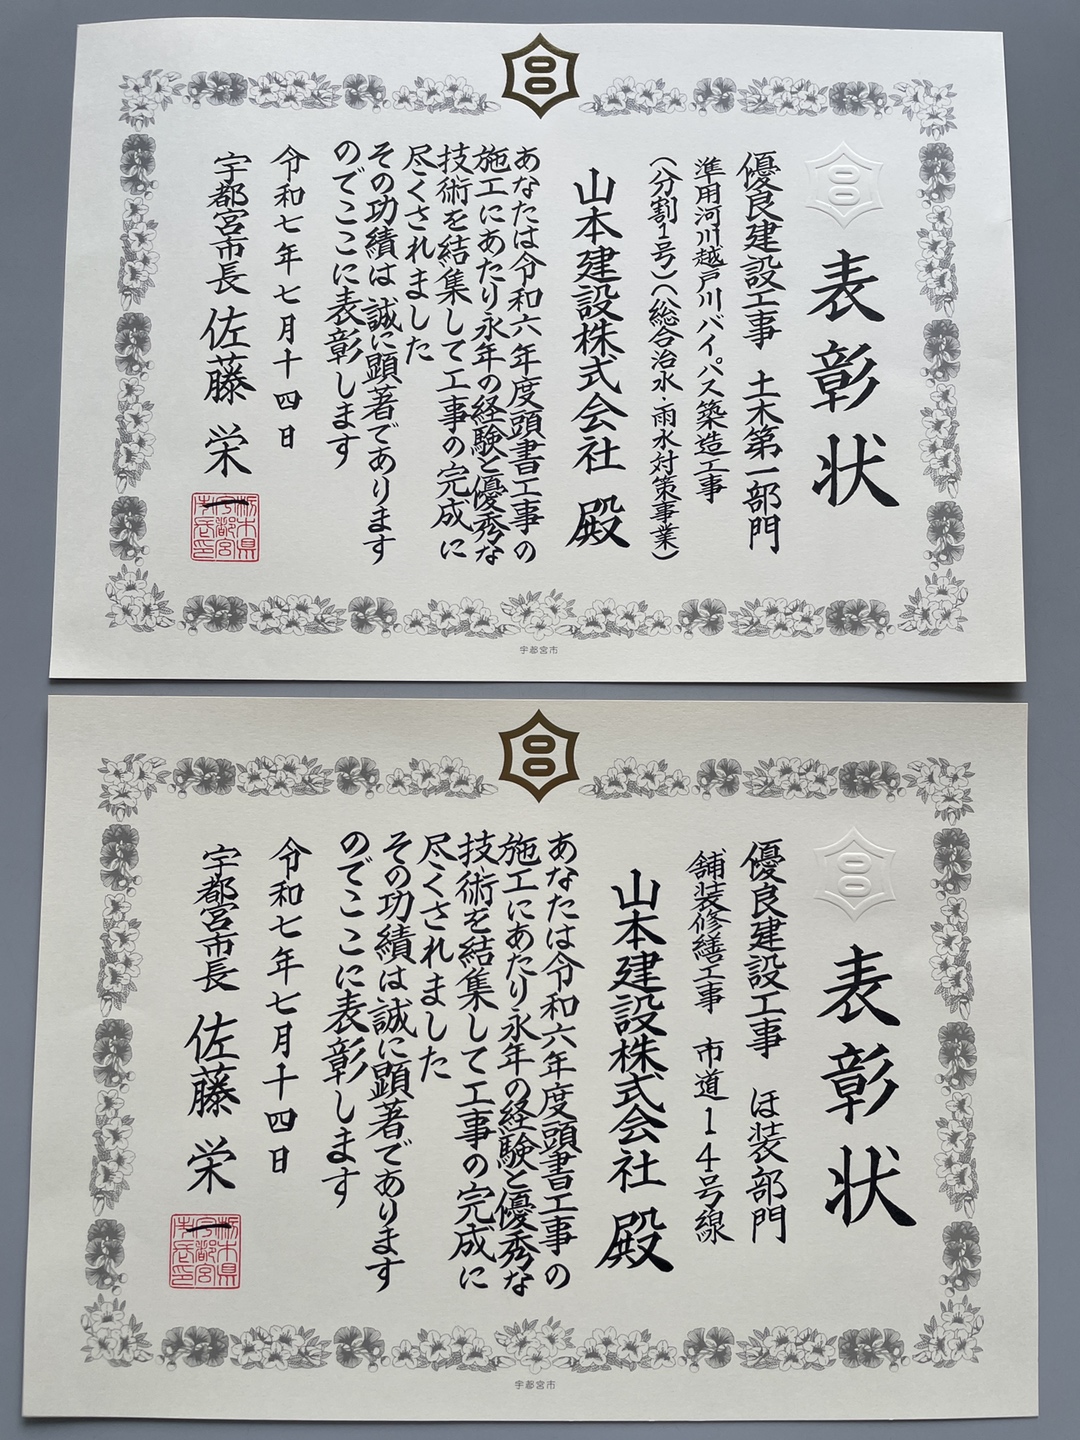 表彰状
優良建設工事 土木第一部門
準用河川越戸川バイパス築造工事
(分割1号)(総合治水・雨水対策事業)
山本建設株式会社 殿
あなたは令和六年度頭書工事の
施工にあたり永年の経験と優秀な
技術を結集して工事の完成に
尽くされました
その功績は誠に顕著であります
のでここに表彰します
令和七年七月十四日
宇都宮市長 佐藤 栄一
栃木県
宇都宮
市長印
宇都宮市
表彰状
優良建設工事 ほ装部門
舗装修繕工事 市道14号線
山本建設株式会社 殿
あなたは令和六年度頭書工事の
施工にあたり永年の経験と優秀な
技術を結集して工事の完成に
尽くされました
その功績は誠に顕著であります
のでここに表彰します
令和七年七月十四日
宇都宮市長 佐藤 栄一
栃木県
宇都宮
市長印
宇都宮市